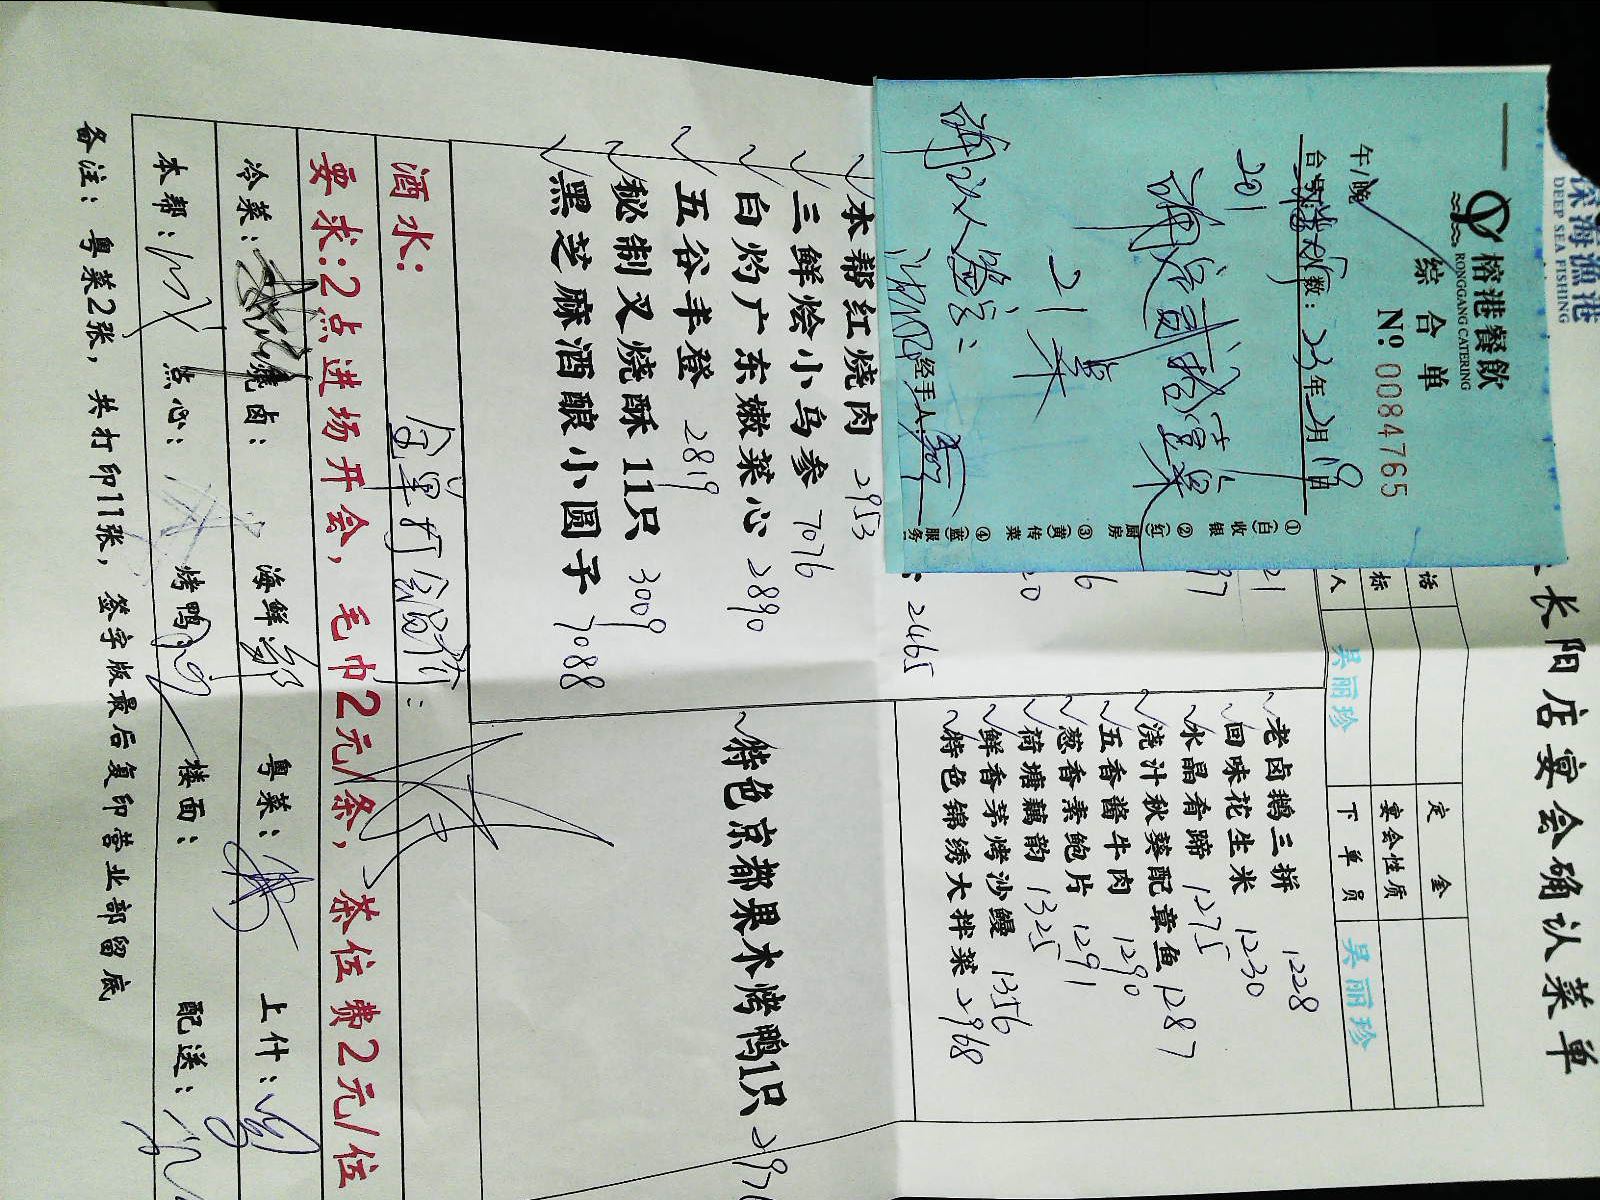 深海渔港
DEEP SEA FISHING
长阳店宴会确认菜单
榕港餐飲
RONGGANG CATERING
综合单
№ 0084765
午/晚
23年2月19日
201
21桌
确认人签字:
经手人:
①(白)收银 ②(红)厨房 ③(黄)传菜 ④(蓝)服务
话
定金
标
宴会性质
人
吴丽珍
下单员
吴丽珍
老卤鹅三拼 1228
回味花生米 1230
水晶肴蹄 1275
浇汁秋葵配章鱼 1287
五香酱牛肉 1290
葱香素鲍片 1291
荷塘藕韵 1325
鲜香茅烤沙鳗 1356
特色锦绣大拌菜 2968
2465
本帮红烧肉 2953
三鲜烩小乌参 7076
白灼广东嫩菜心 2890
五谷丰登 2819
秘制叉烧酥11只 3009
黑芝麻酒酿小圆子 7088
特色京都果木烤鸭1只
酒水:
要求:2点进场开会,毛巾2元/条,茶位费2元/位
冷菜:
烧卤:
海鲜
粤菜:
上什:
本帮:
点心:
烤鸭:
楼面:
配送:
备注:粤菜2张,共打印11张,签字版最后复印营业部留底